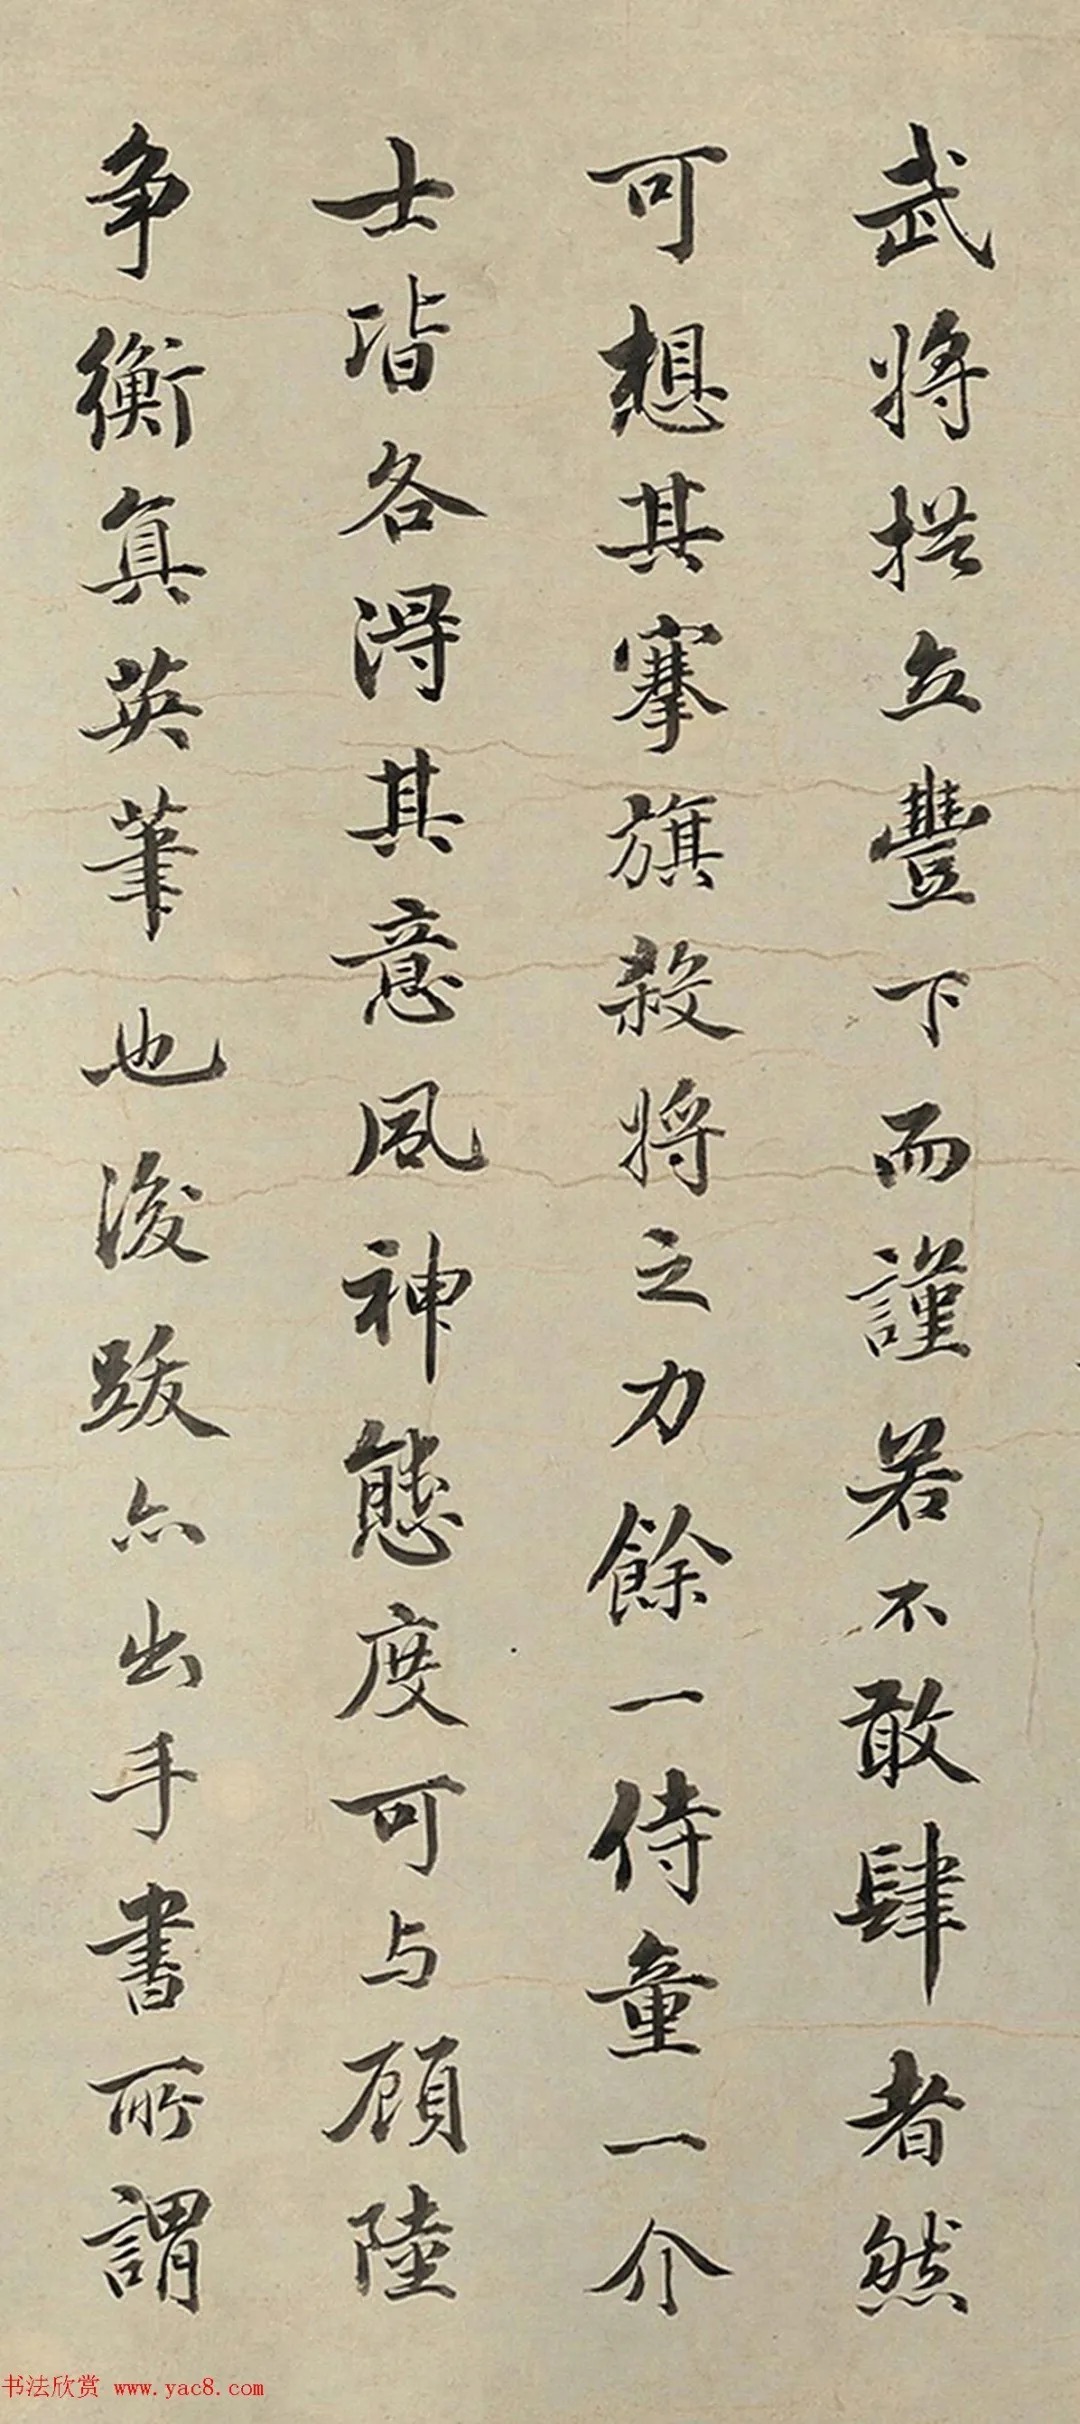 武将拱立豐下而謹若不敢肆者然
可想其搴旗殺将之力餘一侍童一介
士階各淂其意風神態度可与顧陸
争衡真英筆也後跋亦出手書所謂
书法欣赏 www.yac8.com